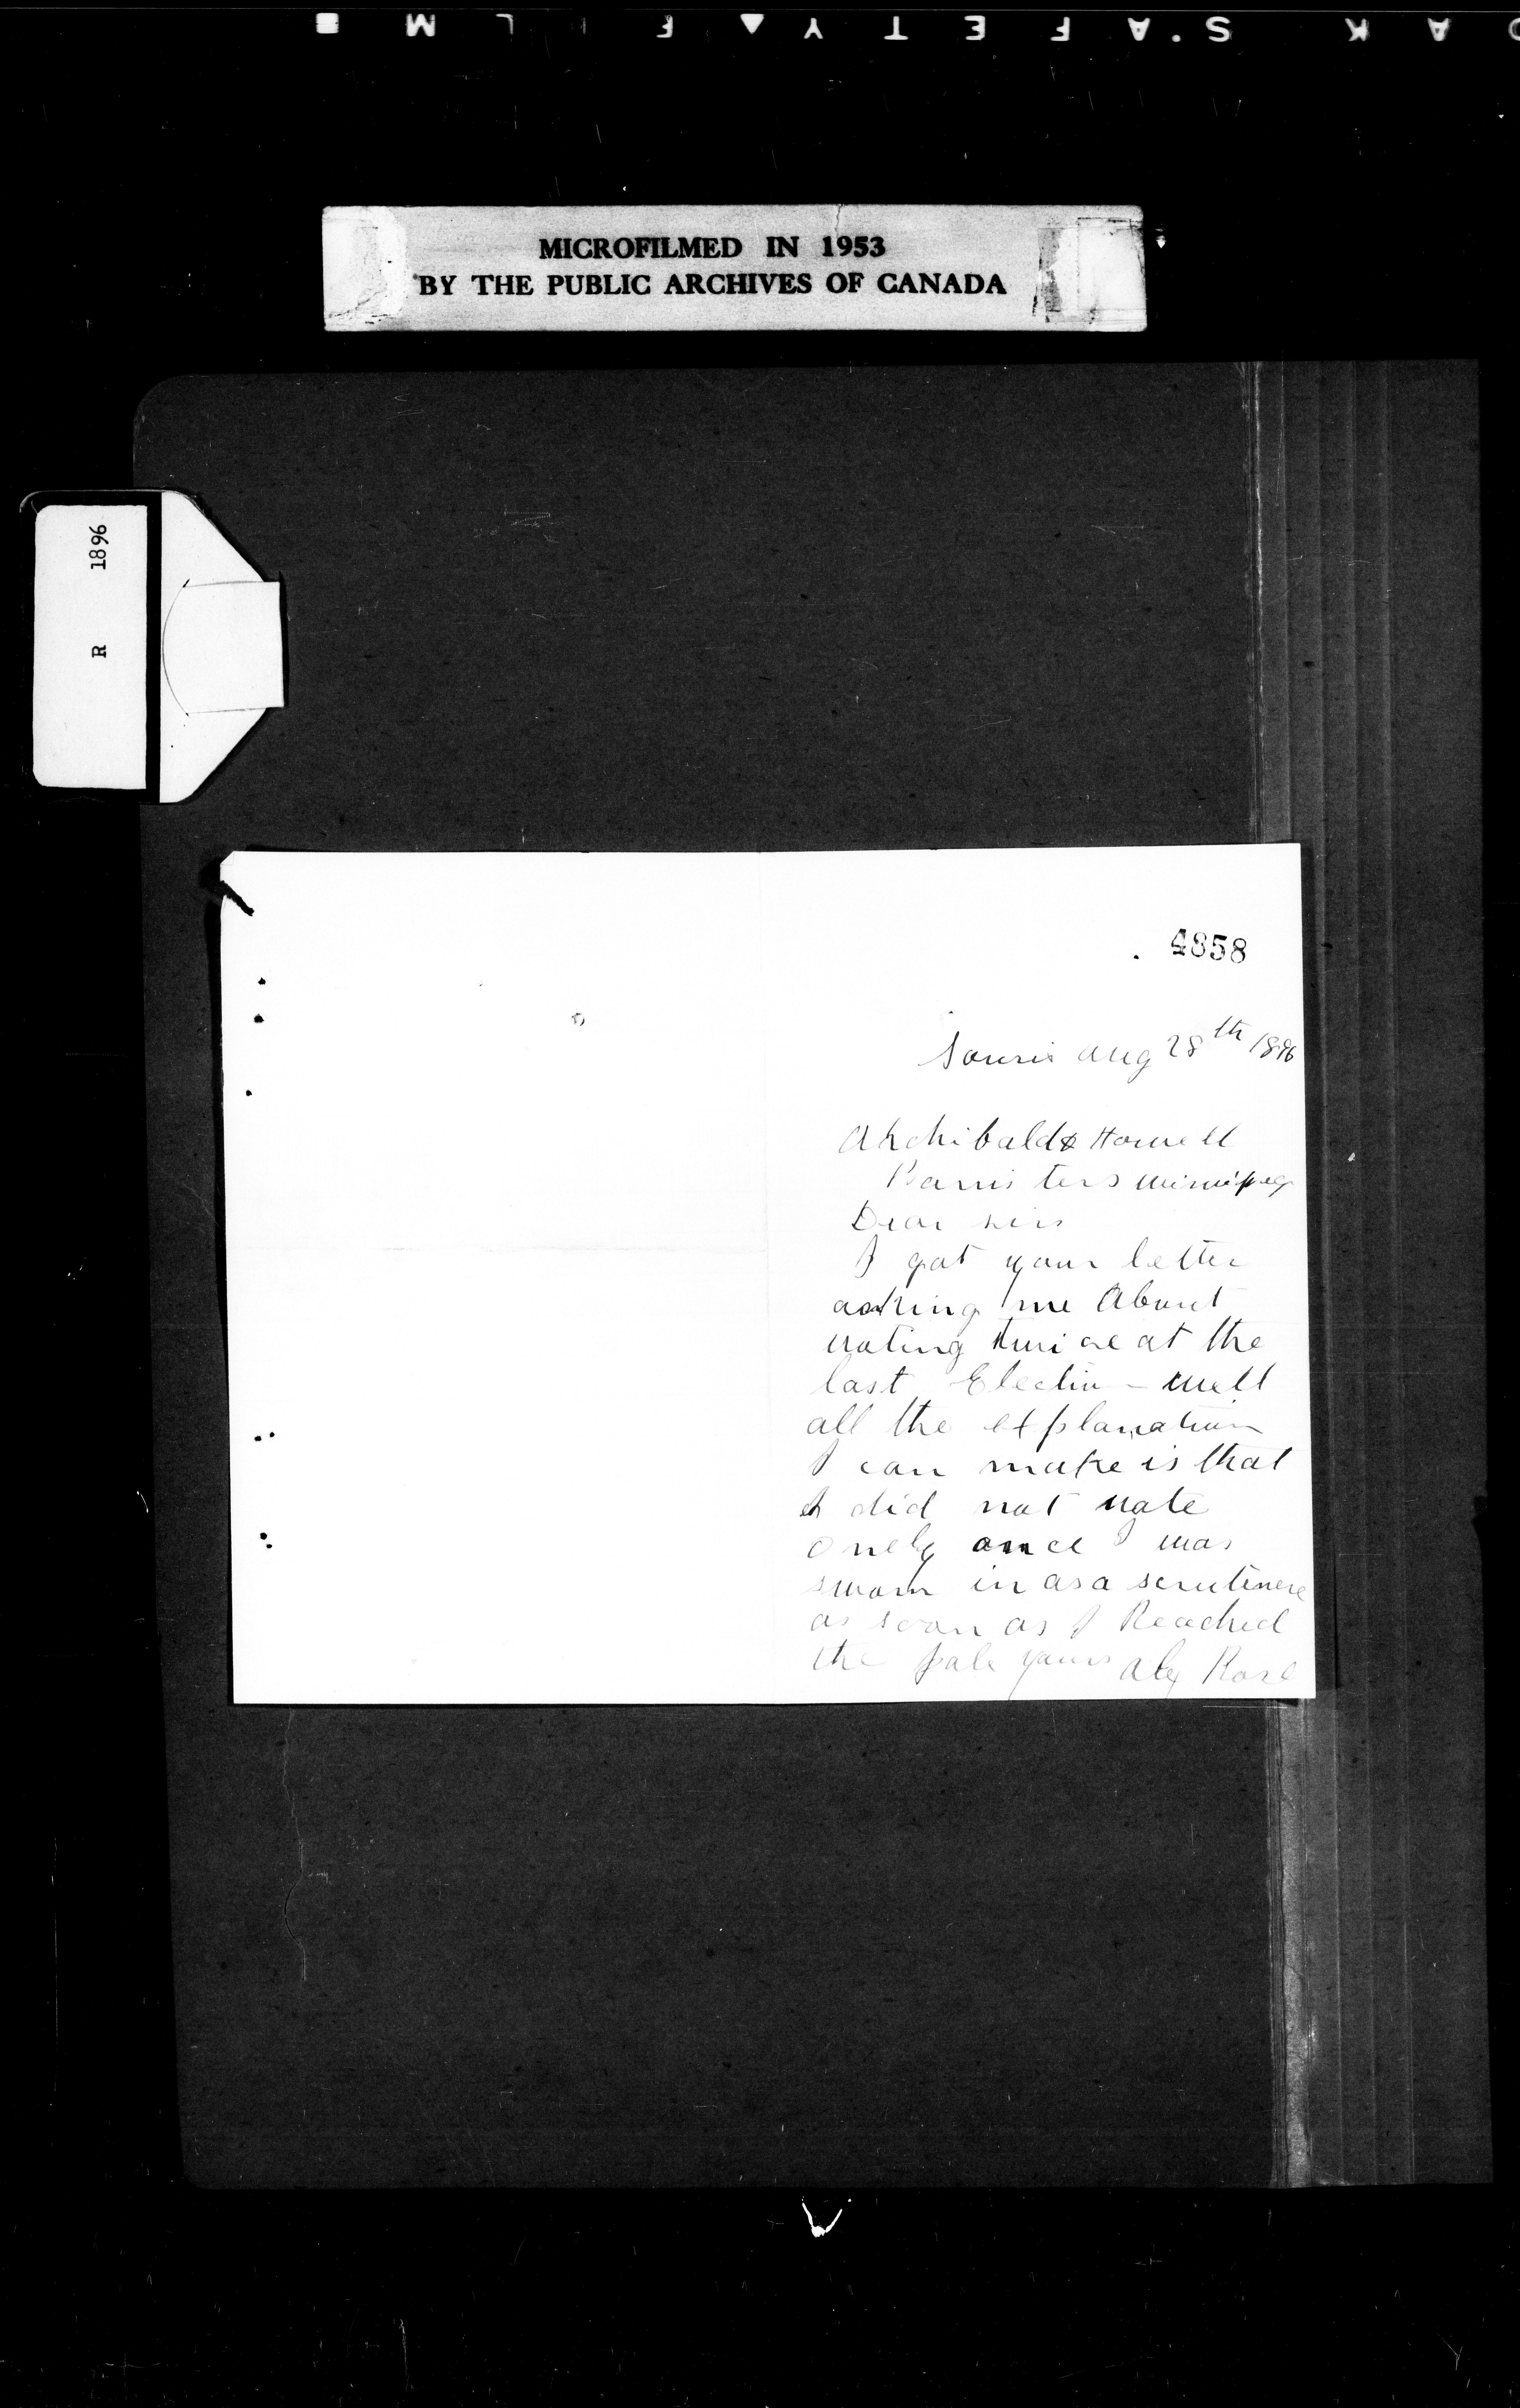 KODAK SAFETY FILM
MICROFILMED IN 1953
BY THE PUBLIC ARCHIVES OF CANADA
R 1896
4858
Souris Aug 28th 1896
Archibald & Howell
Barristers Winnipeg
Dear sirs
I got your letter
asking me About
voting twice at the
last Election - well
all the explanation
I can make is that
I did not vote
onely once I was
sworn in as a scrutinere
as soon as I Reached
the pole yours Alex Rose